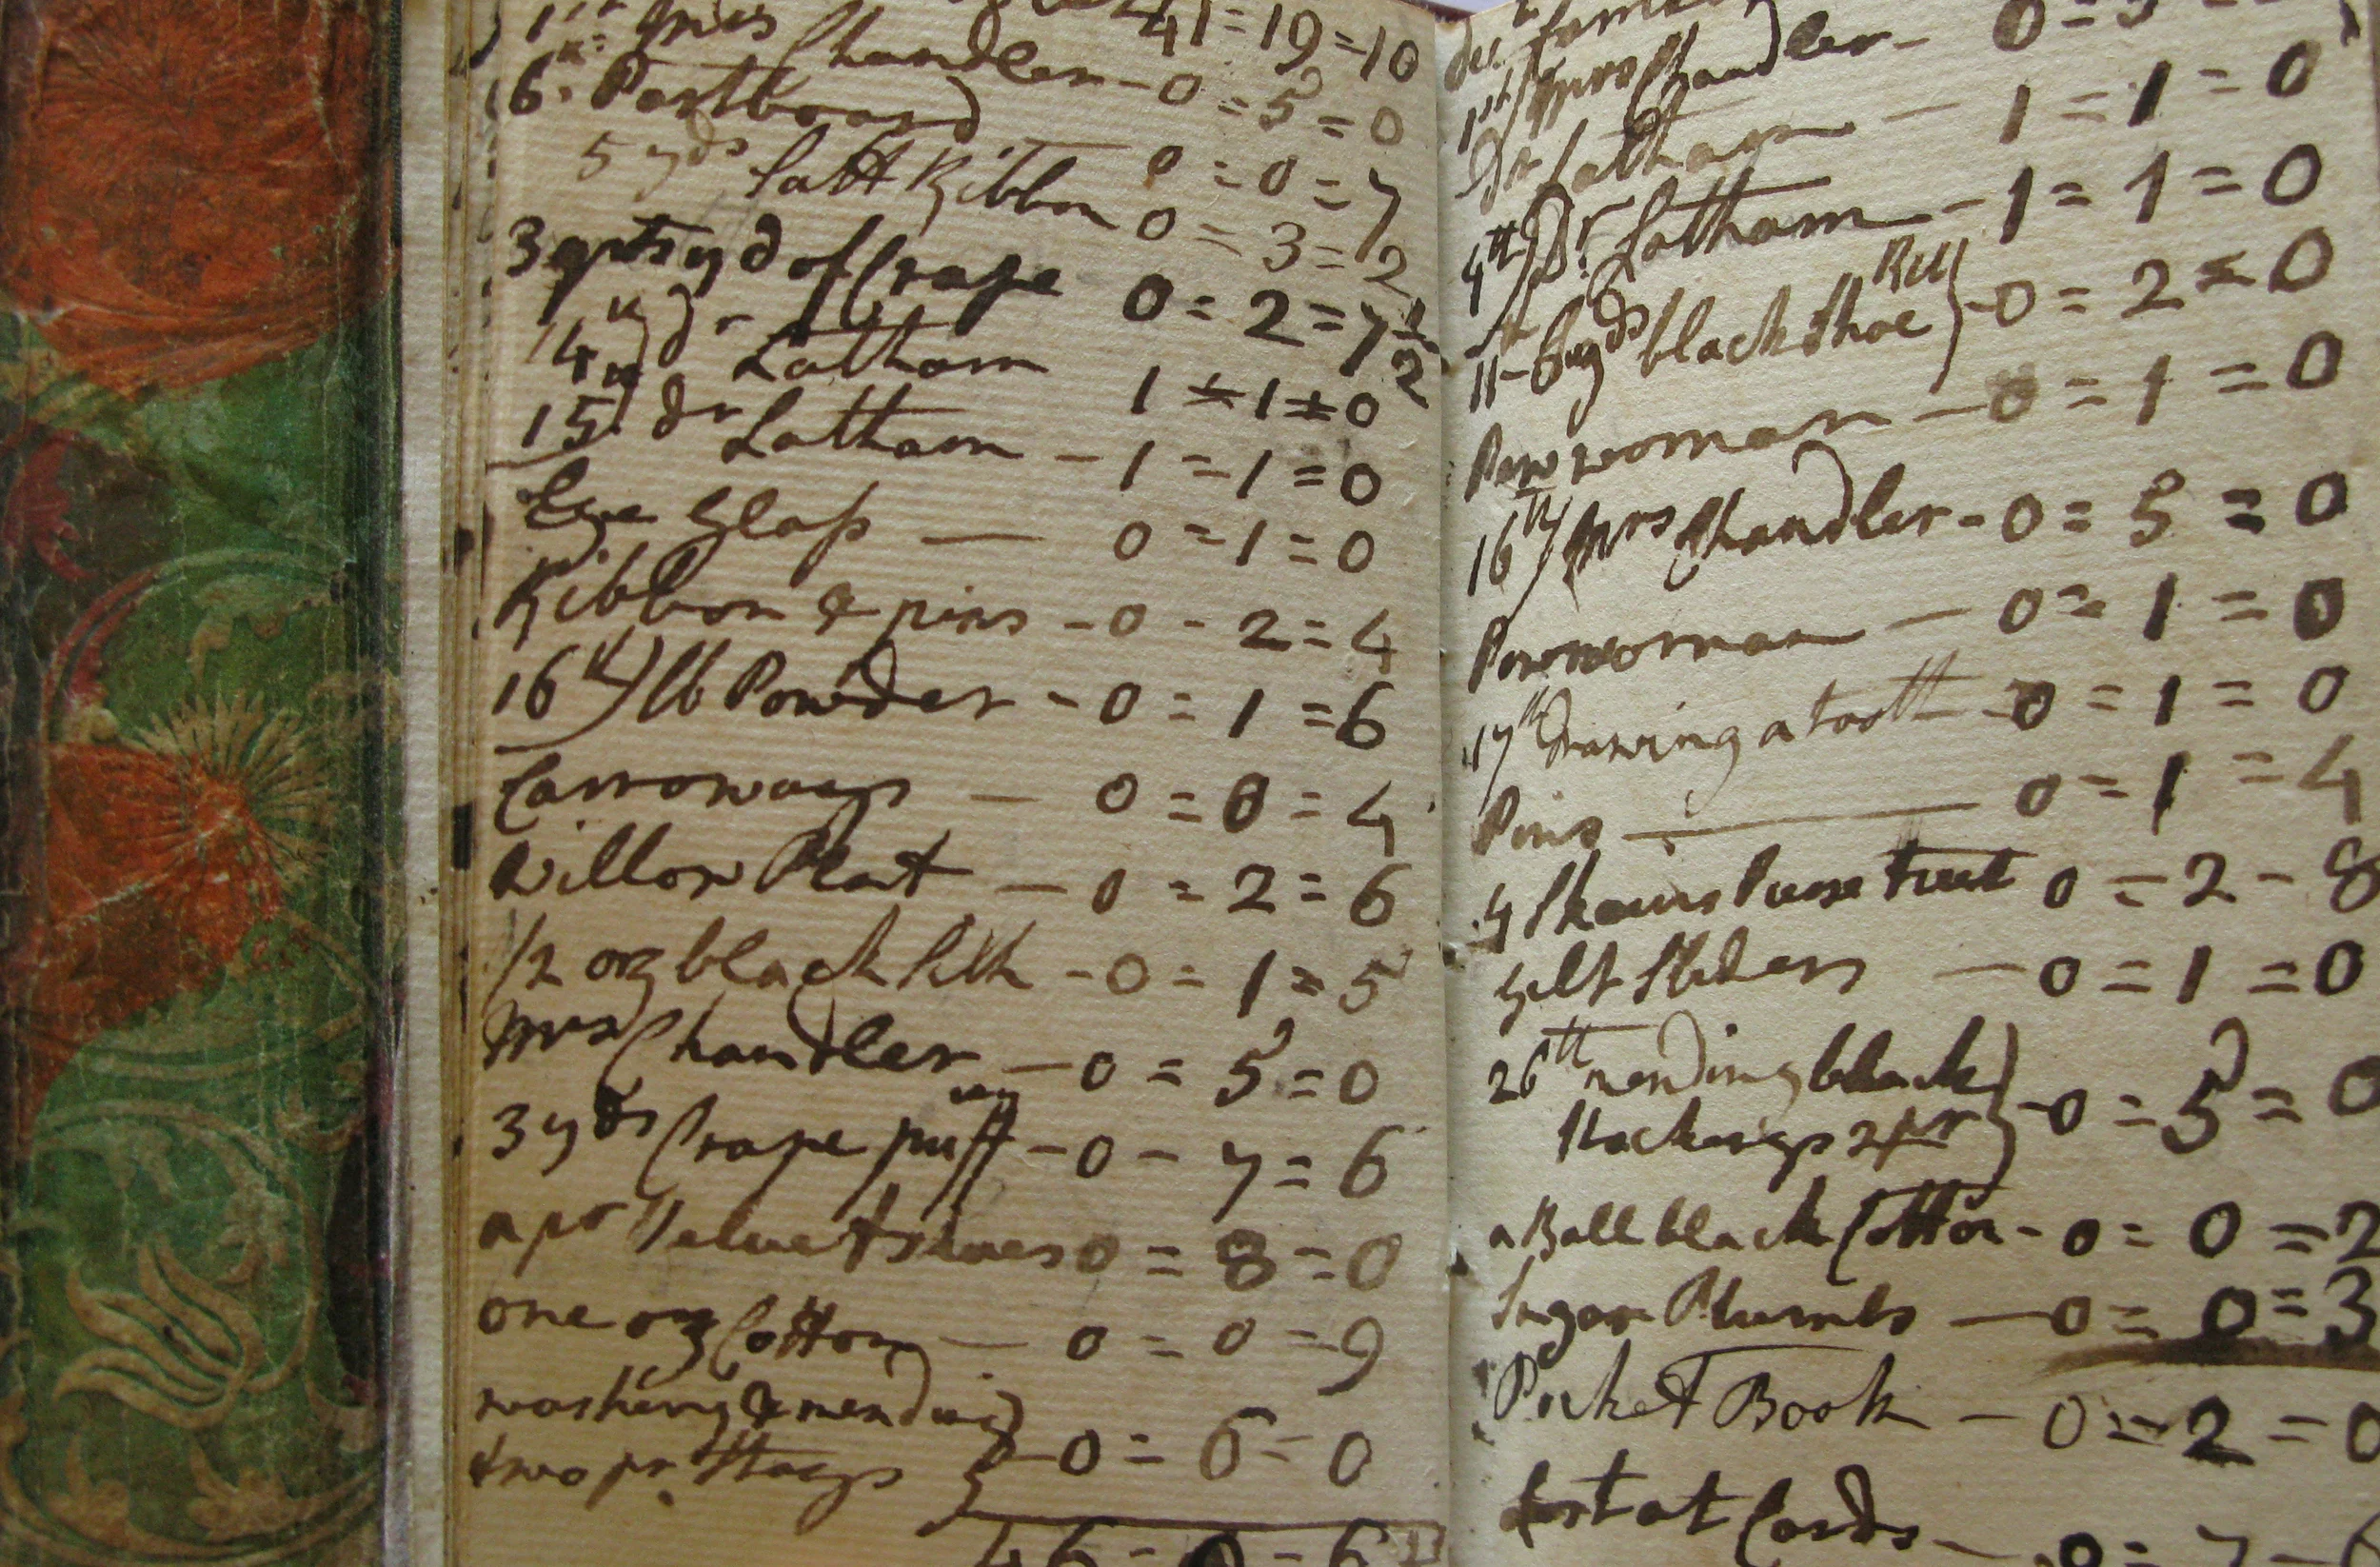 41=19=10
1st Mrs Chandler - 0=5=0
6th Pastboard — 0=0=7
5 yds Sattt Ribbon 0=3=2
3 qrts yd of Crape 0=2=7 1/2
14th) Dr Latham 1=1=0
15th) Dr Latham - 1=1=0
Eye Glass — 0=1=0
Ribbon & pins - 0-2=4
16th) lb Powder - 0=1=6
Carroways — 0=0=4
Willow Plat — 0=2=6
1/2 oz black Silk - 0=1=5
Mrs Chandler — 0=5=0
3 yds Crape puff - 0-7=6
a pr Velvet shoes 0=8=0
one oz Cotton — 0=0=9
washing & mending
two pr Stays } - 0=6=0
46=0=6
1st) Mrs Chandler -
Dr Latham — 1=1=0
4th) Dr Latham - 1=1=0
11th 6 yds black Shoe } - 0=2=0
Pewwoman — 0=1=0
16th) Mrs Chandler - 0=5=0
Pewwoman — 0=1=0
17th Drawing a tooth - 0=1=0
Pins — 0=1=4
4 Skains Purse twist 0=2-8
gilt Sliders — 0=1=0
26th mending black
Stockings 2 pr } - 0=5=0
a Ball black Cotton - 0=0=2
Sugar Plumbs — 0=0=3
Pocket Book — 0=2=0
Lost at Cards -